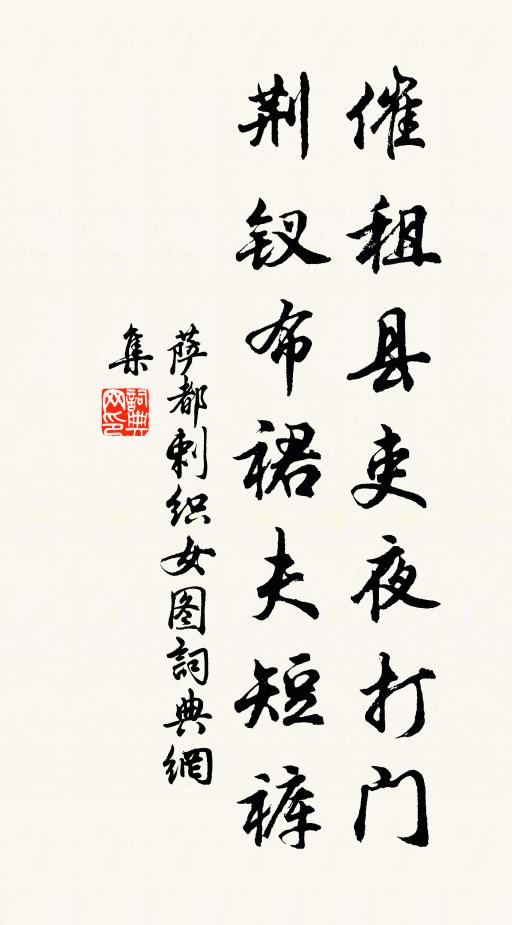 催租县吏夜打门
荆钗布裙夫短裤
萨都剌织女图詞典網
集
詞典
网印